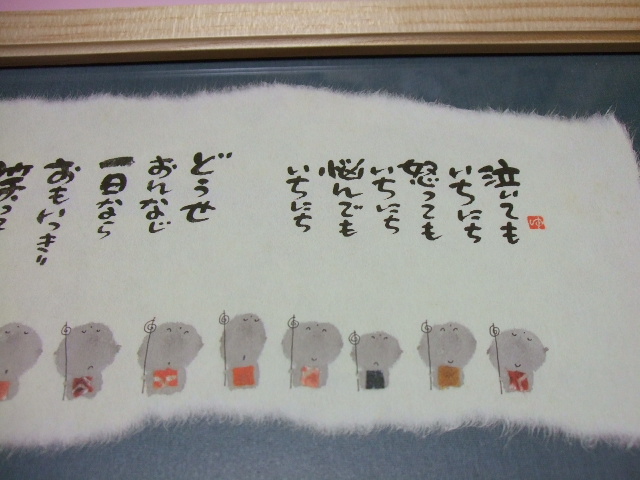 泣いても
いちにち
怒っても
いちにち
悩んでも
いちにち
どうせ
おんなじ
一日なら
おもいっきり